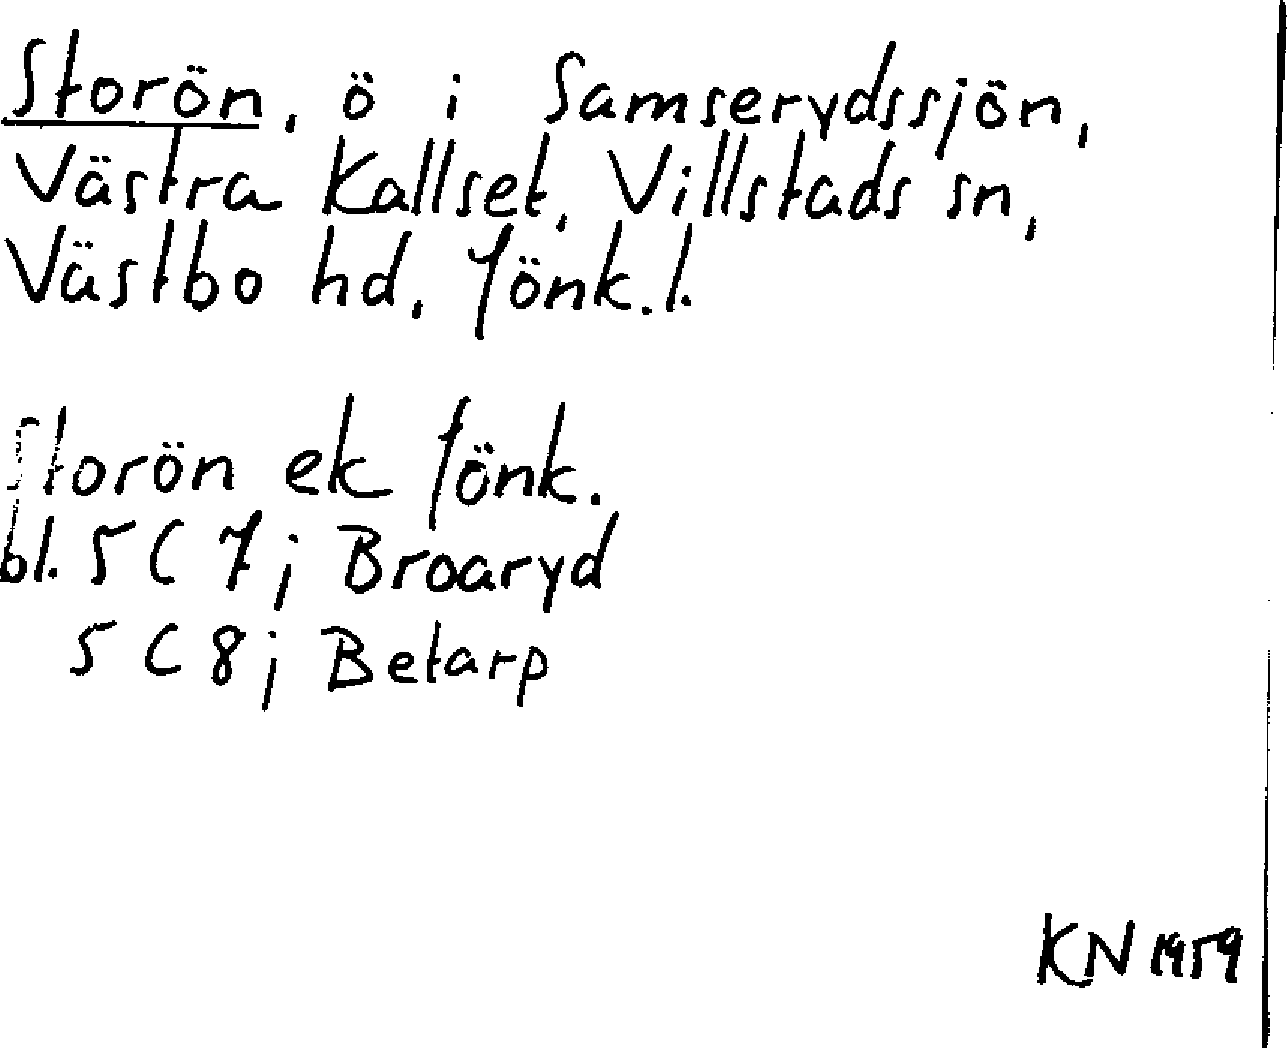 Storön, ö i Samserydssjön,
Västra Kallset, Villstads sn,
Västbo hd, Jönk.l.
Storön ek Jönk.
bl. 5 C 7; Broaryd
5 C 8; Betarp
KN 1959